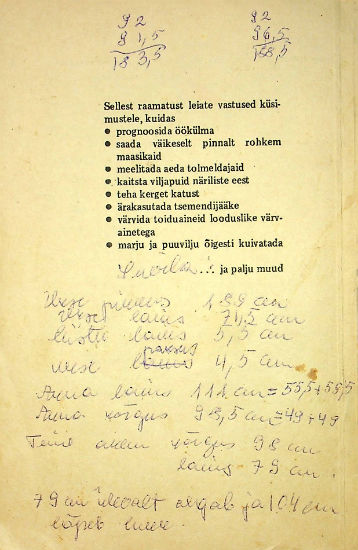 92 92
81,5 96,5
183,5 158,5
Sellest raamatust leiate vastused küsi-
mustele, kuidas
● prognoosida öökülma
● saada väikeselt pinnalt rohkem
maasikaid
● meelitada aeda tolmeldajaid
● kaitsta viljapuid näriliste eest
● teha kerget katust
● ärakasutada tsemendijääke
● värvida toiduaineid looduslike värv-
ainetega
● marju ja puuvilju õigesti kuivatada
ja palju muud
Ukse 189 cm
Ukse laius 74,5 cm
liistu laius 5,5 cm
paksus 4,5 cm
Akna laius 111 cm = 55,5 + 55,5
Akna kõrgus 98,5 cm = 49 + 49
Teine aken kõrgus 98 cm
laius 79 cm
79 cm ülevalt algab ja 104 cm